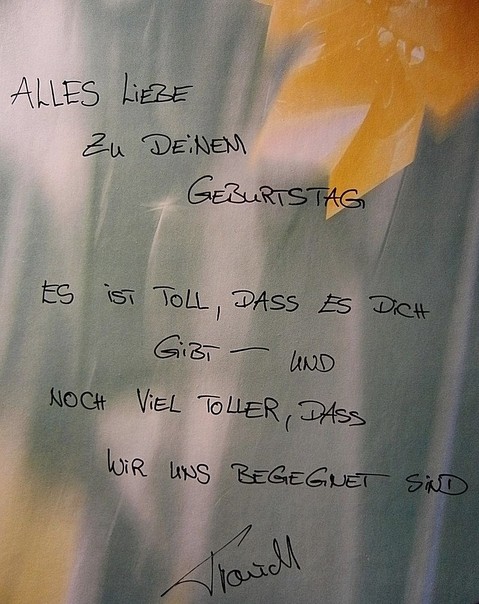 ALLES LIEBE
ZU DEINEM
GEBURTSTAG
ES IST TOLL, DASS ES DICH
GIBT — UND
NOCH VIEL TOLLER, DASS
WIR UNS BEGEGNET SIND